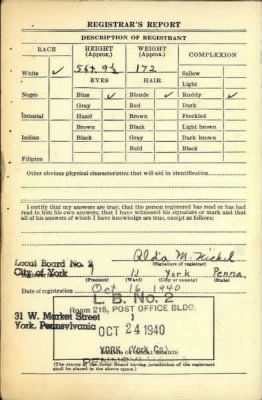 REGISTRAR'S REPORT
DESCRIPTION OF REGISTRANT
RACE
HEIGHT (Approx.)
WEIGHT (Approx.)
COMPLEXION
White ✓
5 ft. 9½
172
Sallow
EYES
HAIR
Light
Negro
Blue ✓
Blonde ✓
Ruddy ✓
Gray
Red
Dark
Oriental
Hazel
Brown
Freckled
Brown
Black
Light brown
Indian
Black
Gray
Dark brown
Bald
Black
Filipino
Other obvious physical characteristics that will aid in identification
I certify that my answers are true; that the person registered has read or has had
read to him his own answers; that I have witnessed his signature or mark and that
all of his answers of which I have knowledge are true, except as follows:
(Signature of registrar)
Local Board No. 2
City of York
York Penna.
Date of registration Oct 16, 1940
L. B. No. 2
Room 215, POST OFFICE BLDG.
31 W. Market Street
York, Pennsylvania
OCT 24 1940
YORK, (York Co.)
PENNSYLVANIA
(The stamp of the Local Board having jurisdiction of the registrant
shall be placed in the above space.)